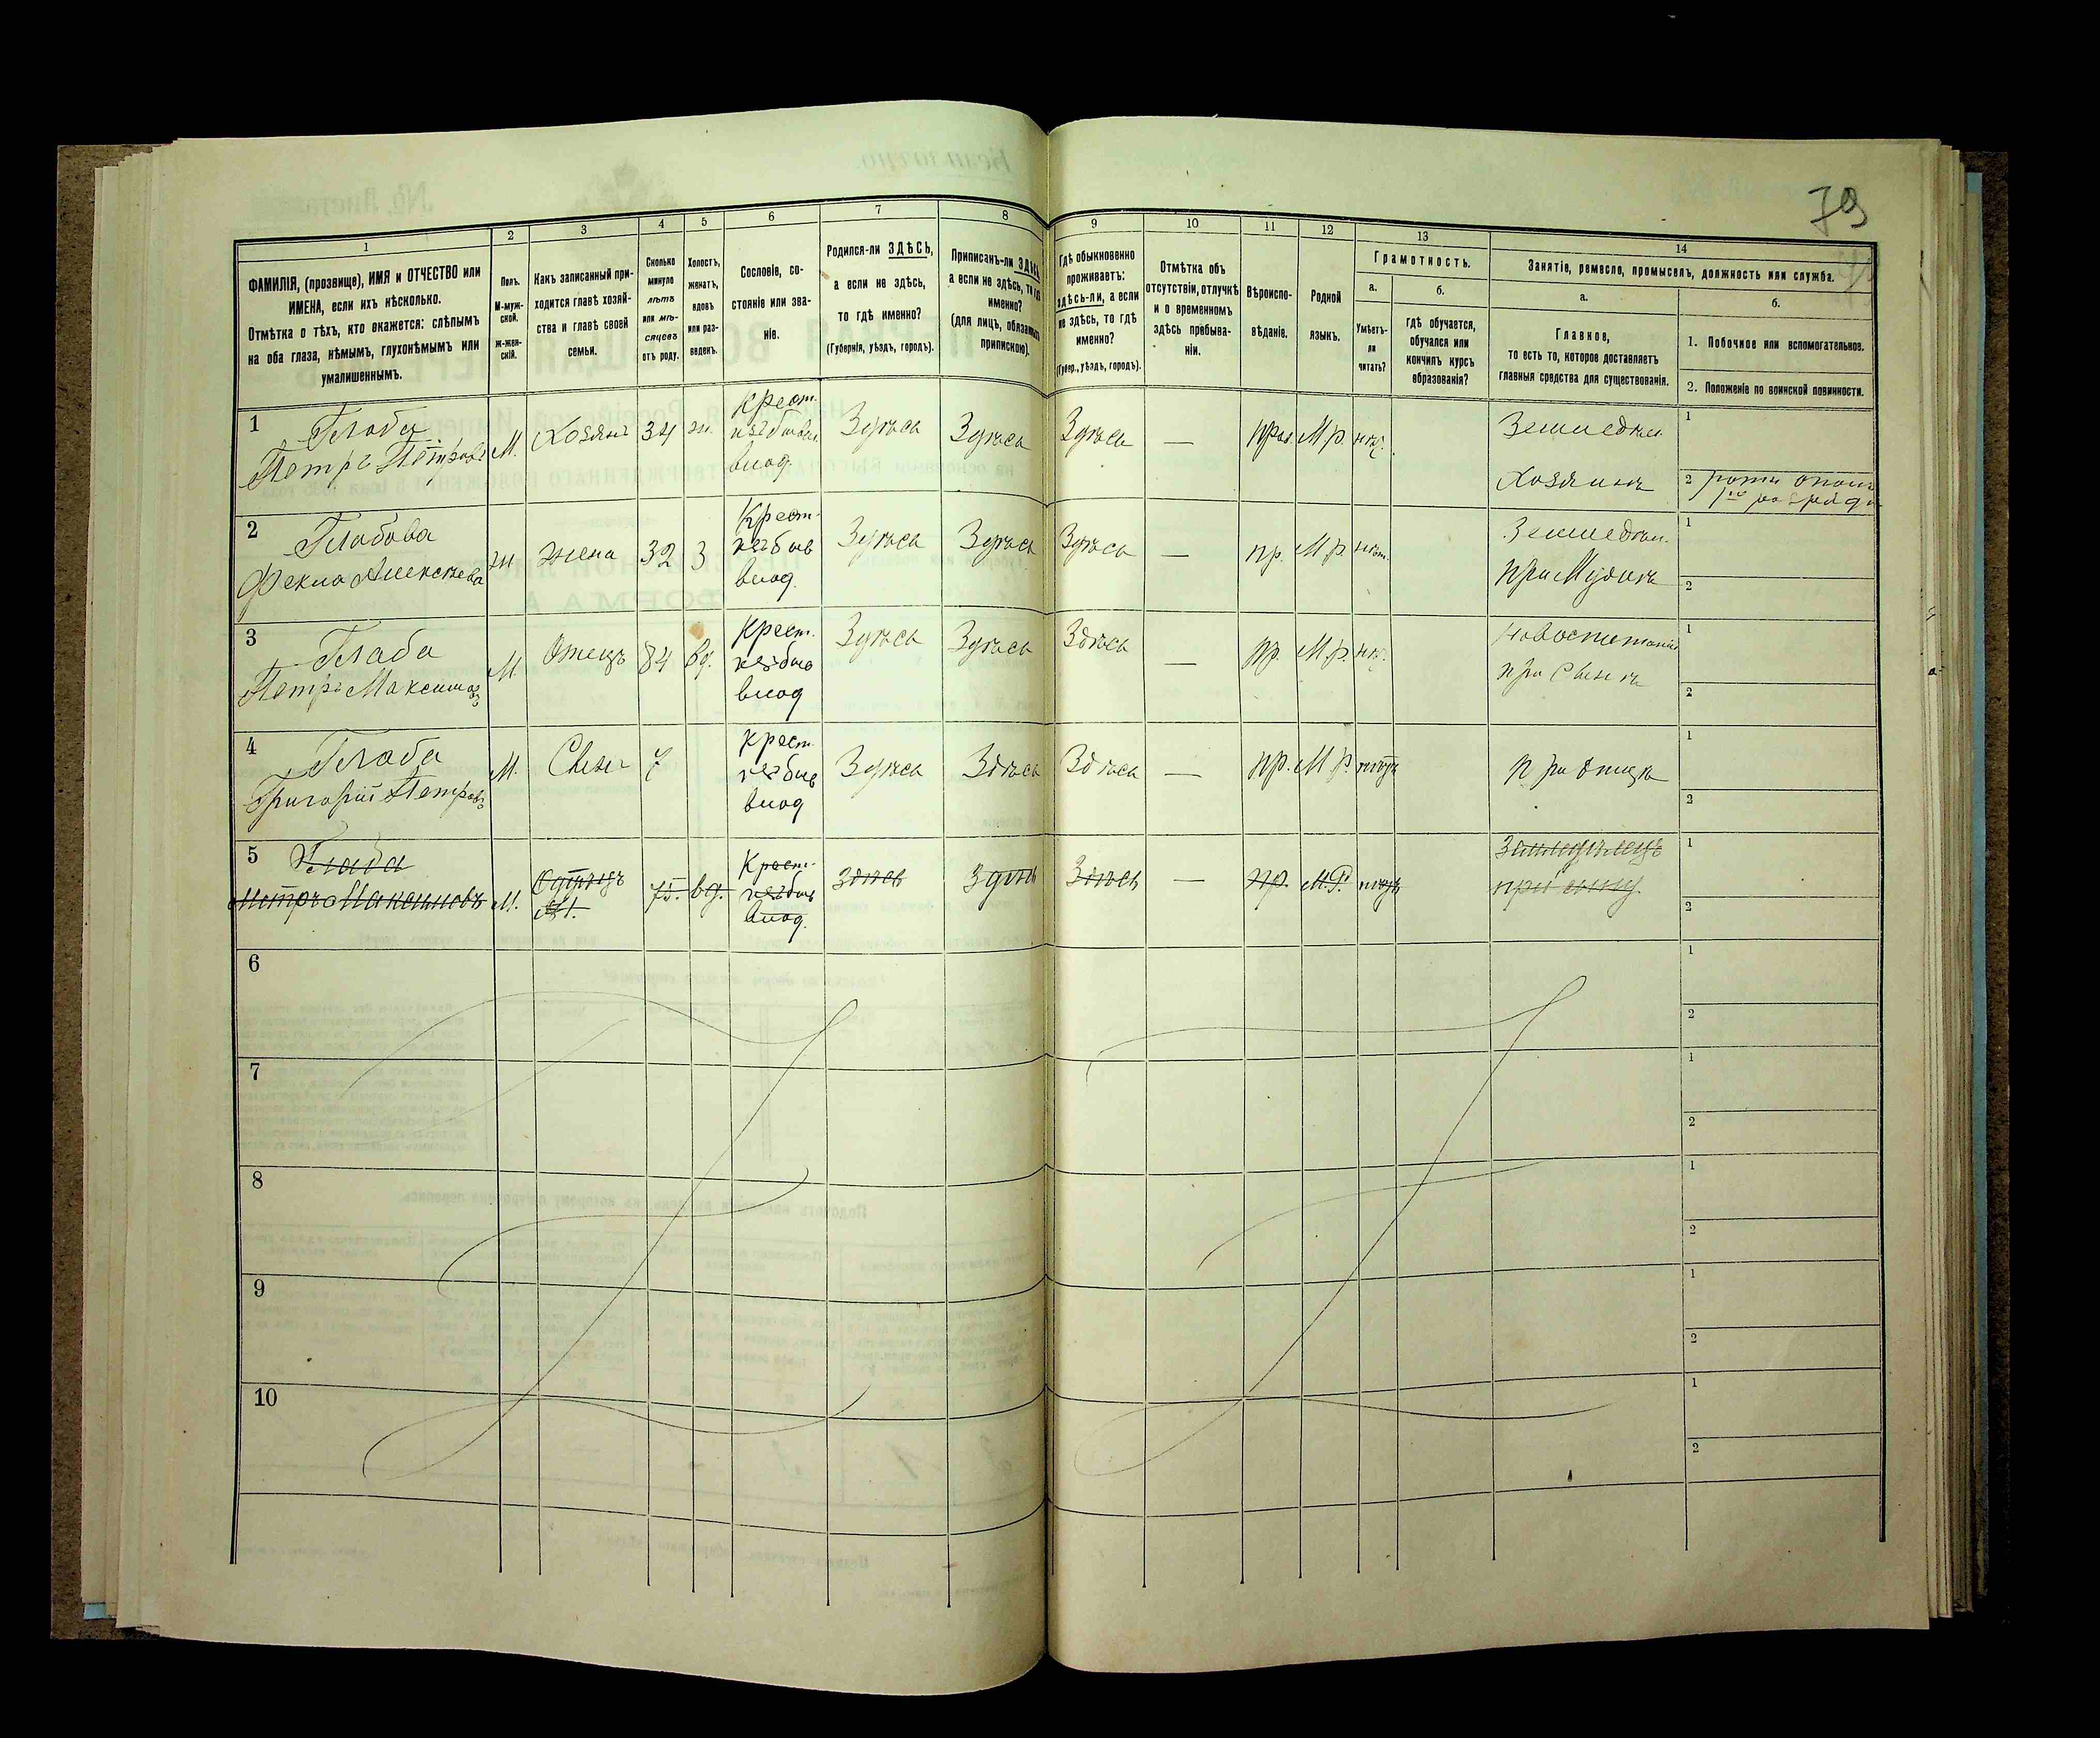 79
1
2
3
4
5
6
7
8
9
10
11
12
13
14
ФАМИЛІЯ, (прозвище), ИМЯ и ОТЧЕСТВО или
ИМЕНА, если ихъ нѣсколько.
Отмѣтка о тѣхъ, кто окажется: слѣпымъ
на оба глаза, нѣмымъ, глухонѣмымъ или
умалишеннымъ.
Полъ.
М-муж-
ской.
ж-жен-
скій.
Какъ записанный при-
ходится главѣ хозяй-
ства и главѣ своей
семьи.
Сколько
минуло
лѣтъ
или мѣ-
сяцевъ
отъ роду.
Холостъ,
женатъ,
вдовъ
или раз-
веденъ.
Сословіе, со-
стояніе или зва-
ніе.
Родился-ли ЗДѢСЬ,
а если не здѣсь,
то гдѣ именно?
(Губернія, уѣздъ, городъ).
Приписанъ-ли ЗДѢСЬ,
а если не здѣсь, то гдѣ
именно?
(для лицъ, обязанныхъ
припискою).
Гдѣ обыкновенно
проживаетъ:
здѣсь-ли, а если
не здѣсь, то гдѣ
именно?
(Губер., уѣздъ, городъ).
Отмѣтка объ
отсутствіи, отлучкѣ
и о временномъ
здѣсь пребыва-
ніи.
Вѣроиспо-
вѣданіе.
Родной
языкъ.
Грамотность.
а.
Умѣетъ-
ли
читать?
б.
гдѣ обучается,
обучался или
кончилъ курсъ
образованія?
Занятіе, ремесло, промыселъ, должность или служба.
а.
Главное,
то есть то, которое доставляетъ
главныя средства для существованія.
б.
1. Побочное или вспомогательное.
2. Положеніе по воинской повинности.
1
Глоба
Петръ Петровъ
М.
Хозяинъ
34
ж.
Крест.
влад.
Здѣсь
Здѣсь
Здѣсь
—
прав.
М р
Земледѣл.
Хозяинъ
1
2 ратн опол
1го разряда
2
Глобова
Фекла Алексѣева
ж
жена
32
З
Крест.
влад.
Здѣсь
Здѣсь
Здѣсь
—
пр.
М р
нѣт.
Земледѣл.
при Мужѣ
1
2
3
Глоба
Петръ Максимовъ
М.
Отецъ
84
вд.
Крест.
влад
Здѣсь
Здѣсь
Здѣсь
—
пр.
М.р.
при Сынѣ
1
2
4
Глоба
Григорій Петровъ
М.
Сынъ
7
Крест.
влад
Здѣсь
Здѣсь
Здѣсь
—
пр.
М р.
при отцѣ
1
2
5
Глоба
Петръ Максимовъ
М.
75.
вд.
Крест.
влад.
Здѣсь
Здѣсь
Здѣсь
—
пр.
М.Р.
Земледѣлецъ
при сыну.
1
2
6
1
2
7
1
2
8
1
2
9
1
2
10
1
2